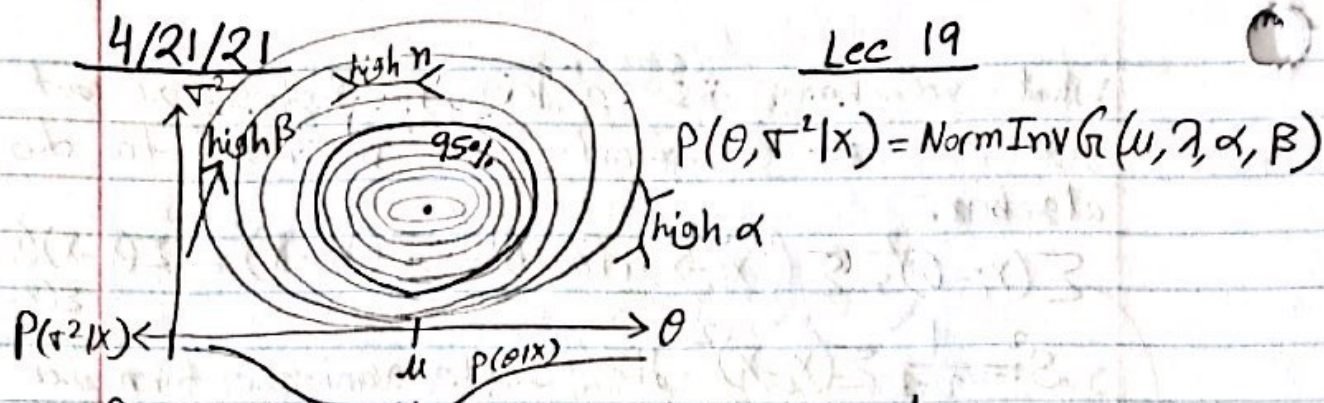 4/21/21
Lec 19
σ²
high n
high β
95%
P(θ,σ²|x) = NormInvG(μ,λ,α,β)
high α
P(σ²|x)
θ
μ
P(θ|x)